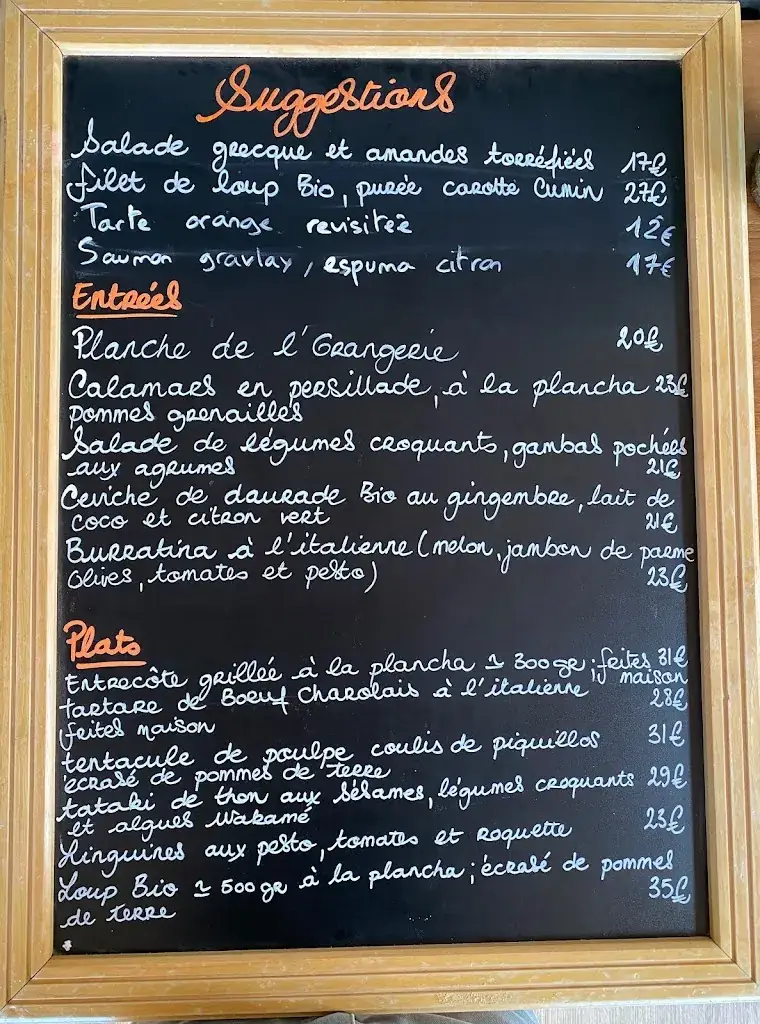 Suggestions
Salade grecque et amandes torréfiées 17€
filet de loup Bio, purée carotte Cumin 27€
Tarte orange revisitée 12€
Saumon gravlax, espuma citron 17€
Entrées
Planche de l'Grangerie 20€
Calamars en persillade, à la plancha 23€
pommes grenailles
Salade de légumes croquants, gambas pochées
aux agrumes 21€
Ceviche de daurade Bio au gingembre, lait de
coco et citron vert 21€
Burratina à l'italienne (melon, jambon de parme
Olives, tomates et pesto) 23€
Plats
Entrecôte grillée à la plancha ≃ 300gr; frites 31€
maison
tartare de Boeuf Charolais à l'italienne 28€
frites maison
tentacule de poulpe coulis de piquillos 31€
écrasé de pommes de terre
tataki de thon aux Sésames, légumes croquants 29€
et algues Wakamé
Linguines aux pesto, tomates et roquette 23€
Loup Bio ≃ 500gr à la plancha; écrasé de pommes
de terre 35€